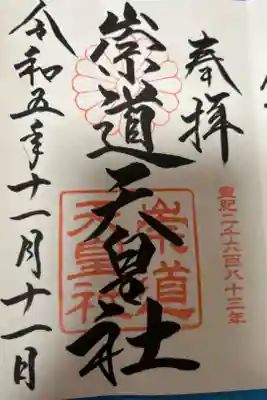 奉拝
皇紀二千六百八十三年
崇道天皇社
崇道
天皇社
令和五年十一月十一日